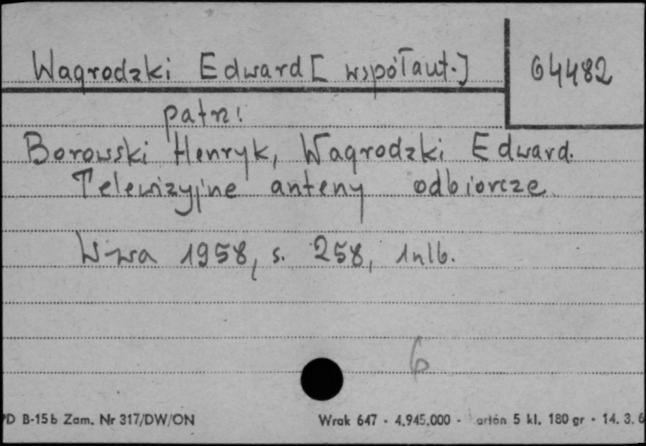 Wagrodzki Edward [współaut.]
64482
patrz:
Borowski Henryk, Wagrodzki Edward.
Telewizyjne anteny odbiorcze.
W-wa 1958, s. 258, 1nlb.
6
PD B-15b Zam. Nr 317/DW/ON
Wrak 647 - 4.945.000 - artón 5 kl. 180 gr - 14. 3. 6